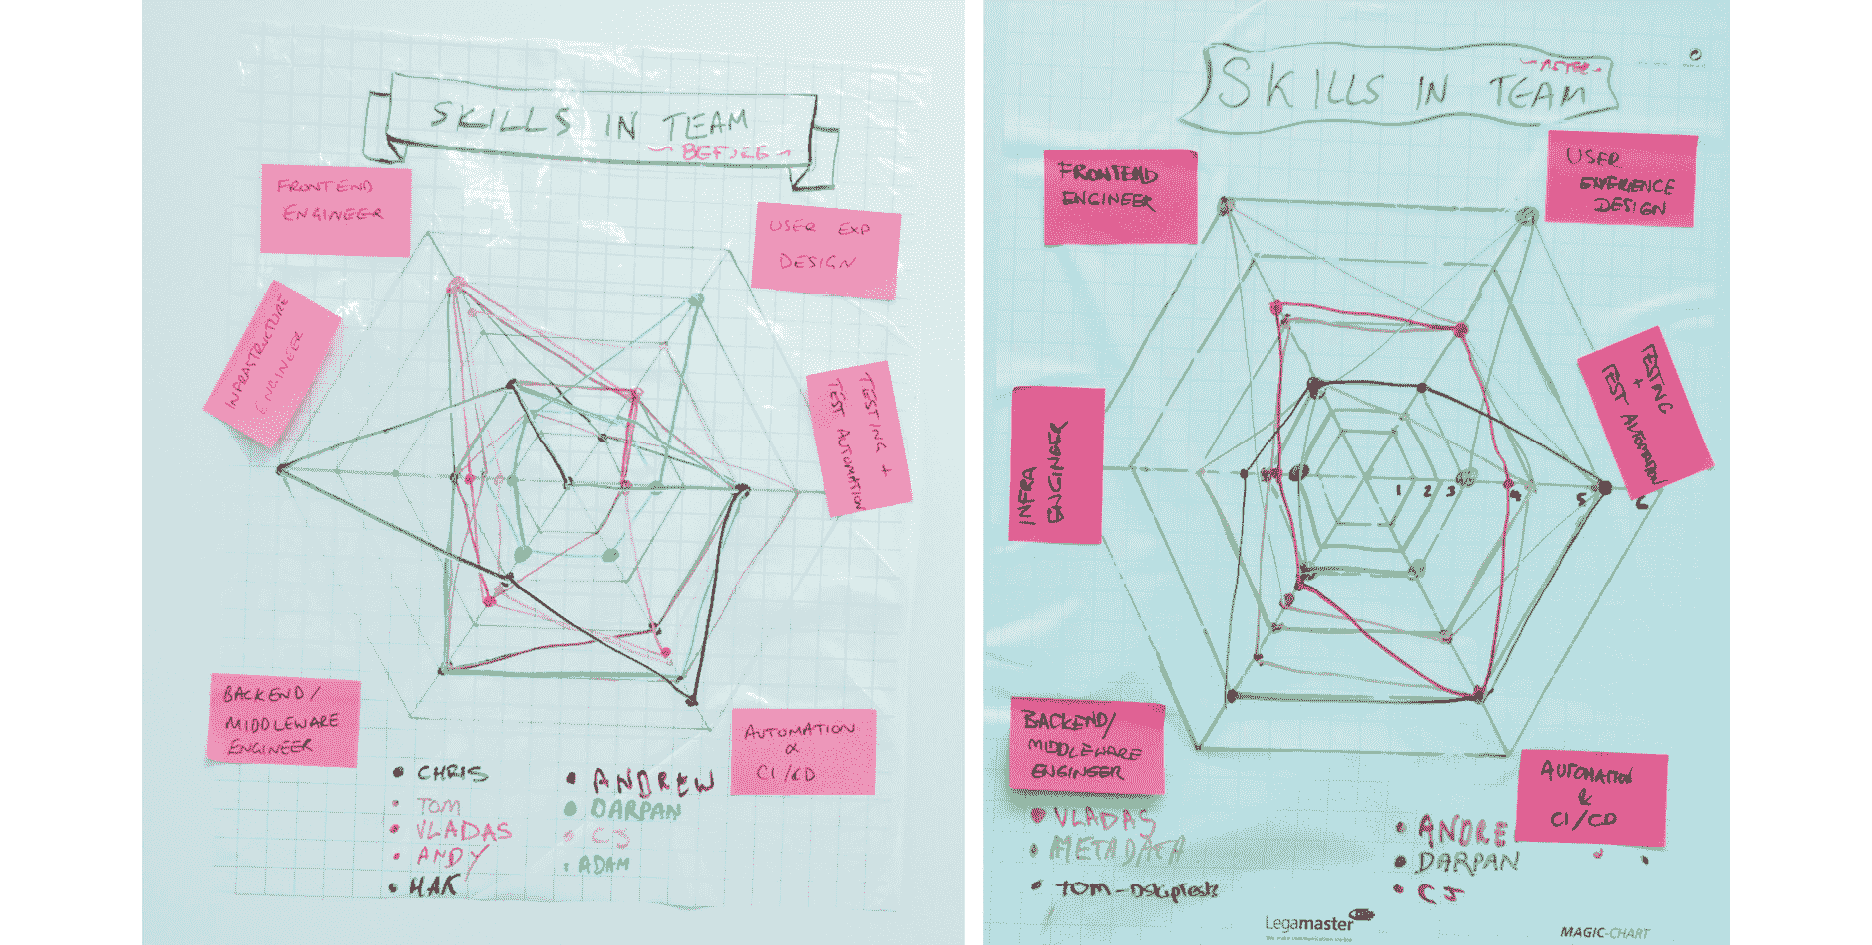 SKILLS IN TEAM
~ BEFORE ~
FRONTEND
ENGINEER
USER EXP
DESIGN
INFRASTRUCTURE
ENGINEER
TESTING +
TEST AUTOMATION
BACKEND/
MIDDLEWARE
ENGINEER
AUTOMATION
&
CI/CD
CHRIS
TOM
VLADAS
ANDY
MAK
ANDREW
DARPAN
CJ
ADAM
SKILLS IN TEAM
~ AFTER ~
FRONTEND
ENGINEER
USER
EXPERIENCE
DESIGN
INFRA
ENGINEER
TESTING
+
TEST AUTOMATION
1 2 3 4 5
BACKEND/
MIDDLEWARE
ENGINEER
AUTOMATION
&
CI/CD
VLADAS
METADATA
TOM -
ANDRE
DARPAN
CJ
Legamaster
MAGIC-CHART